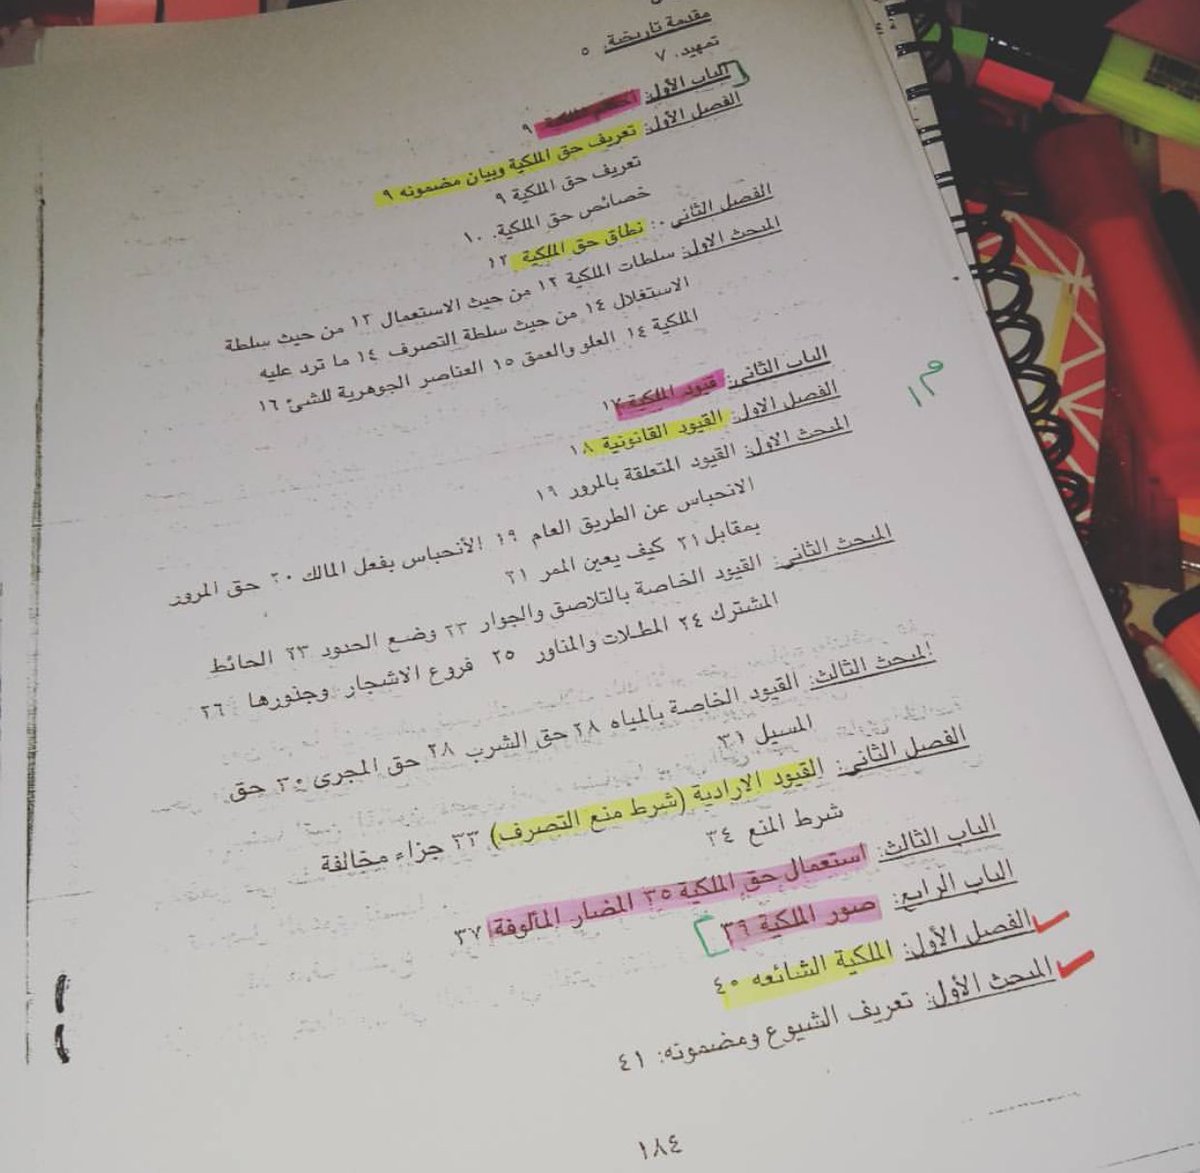 مقدمة تاريخية: ٥
تمهيد. ٧
الباب الأول: أحكام الملكية ٩
الفصل الأول: تعريف حق الملكية وبيان مضمونه ٩
تعريف حق الملكية ٩
خصائص حق الملكية. ١٠
الفصل الثاني: نطاق حق الملكية ١٢
المبحث الاول: سلطات الملكية ١٢ من حيث الاستعمال ١٣ من حيث سلطة
الاستغلال ١٤ من حيث سلطة التصرف ١٤ ما ترد عليه
الملكية ١٤ العلو والعمق ١٥ العناصر الجوهرية للشئ ١٦
الباب الثاني: قيود الملكية ١٧
الفصل الاول: القيود القانونية ١٨
المبحث الاول: القيود المتعلقة بالمرور ١٩
الانحباس عن الطريق العام ١٩ الأنحباس بفعل المالك ٢٠ حق المرور
بمقابل ٢١ كيف يعين الممر ٢١
المبحث الثاني: القيود الخاصة بالتلاصق والجوار ٢٣ وضع الحدود ٢٣ الحائط
المشترك ٢٤ المطلات والمناور ٢٥ فروع الاشجار وجذورها ٢٦
المبحث الثالث: القيود الخاصة بالمياه ٢٨ حق الشرب ٢٨ حق المجرى ٣٠ حق
المسيل ٣١
الفصل الثاني: القيود الارادية (شرط منع التصرف) ٣٣ جزاء مخالفة
شرط المنع ٣٤
الباب الثالث: استعمال حق الملكية ٣٥ المضار المألوفة ٣٧
الباب الرابع: صور الملكية ٣٩
الفصل الأول: الملكية الشائعه ٤٠
المبحث الأول: تعريف الشيوع ومضمونه: ٤١
١٨٤
م١